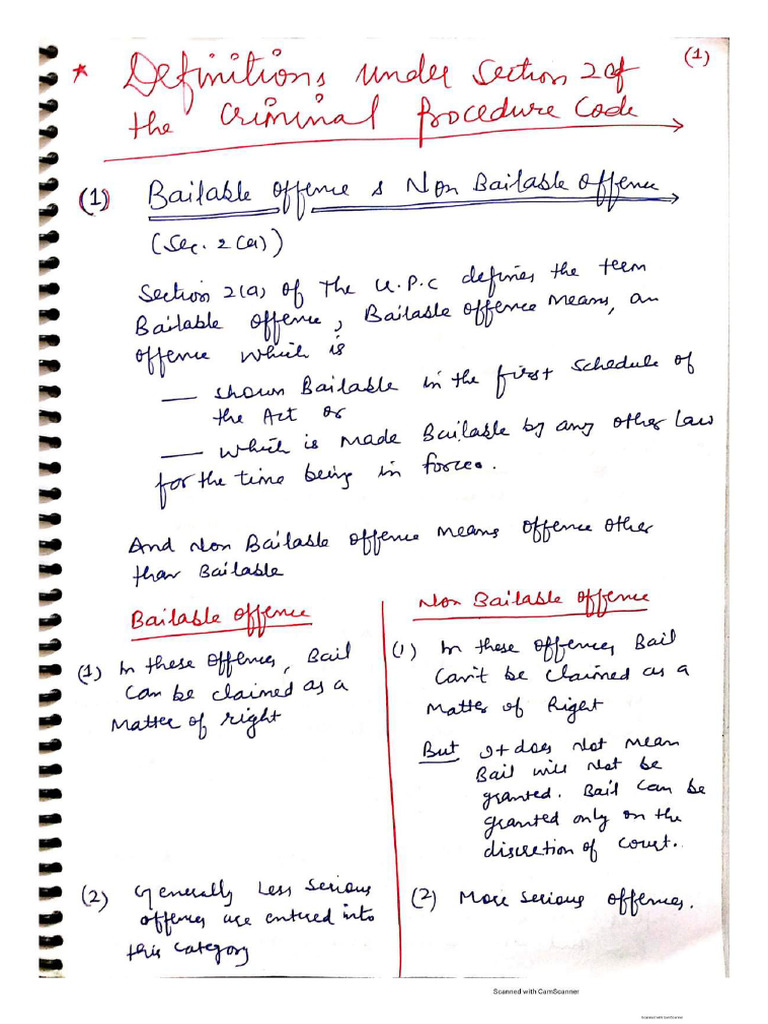 (1)
* Definitions under Section 2 of
the Criminal Procedure Code
(1) Bailable offence & Non Bailable offence
(Sec. 2(a))
Section 2(a) of The Cr.P.C defines the term
Bailable offence, Bailable offence means, an
offence which is
— shown Bailable in the first schedule of
the Act or
— which is made Bailable by any other law
for the time being in force.
And Non Bailable offence means offence other
than Bailable
Bailable offence
(1) In these offences, Bail
can be claimed as a
Matter of right
(2) Generally Less serious
offences are entered into
this category
Non Bailable offence
(1) In these offences, Bail
can't be claimed as a
Matter of Right
But It does Not mean
Bail will Not be
granted. Bail can be
granted only on the
discretion of court.
(2) More serious offences.
Scanned with CamScanner
Scanned with CamScanner